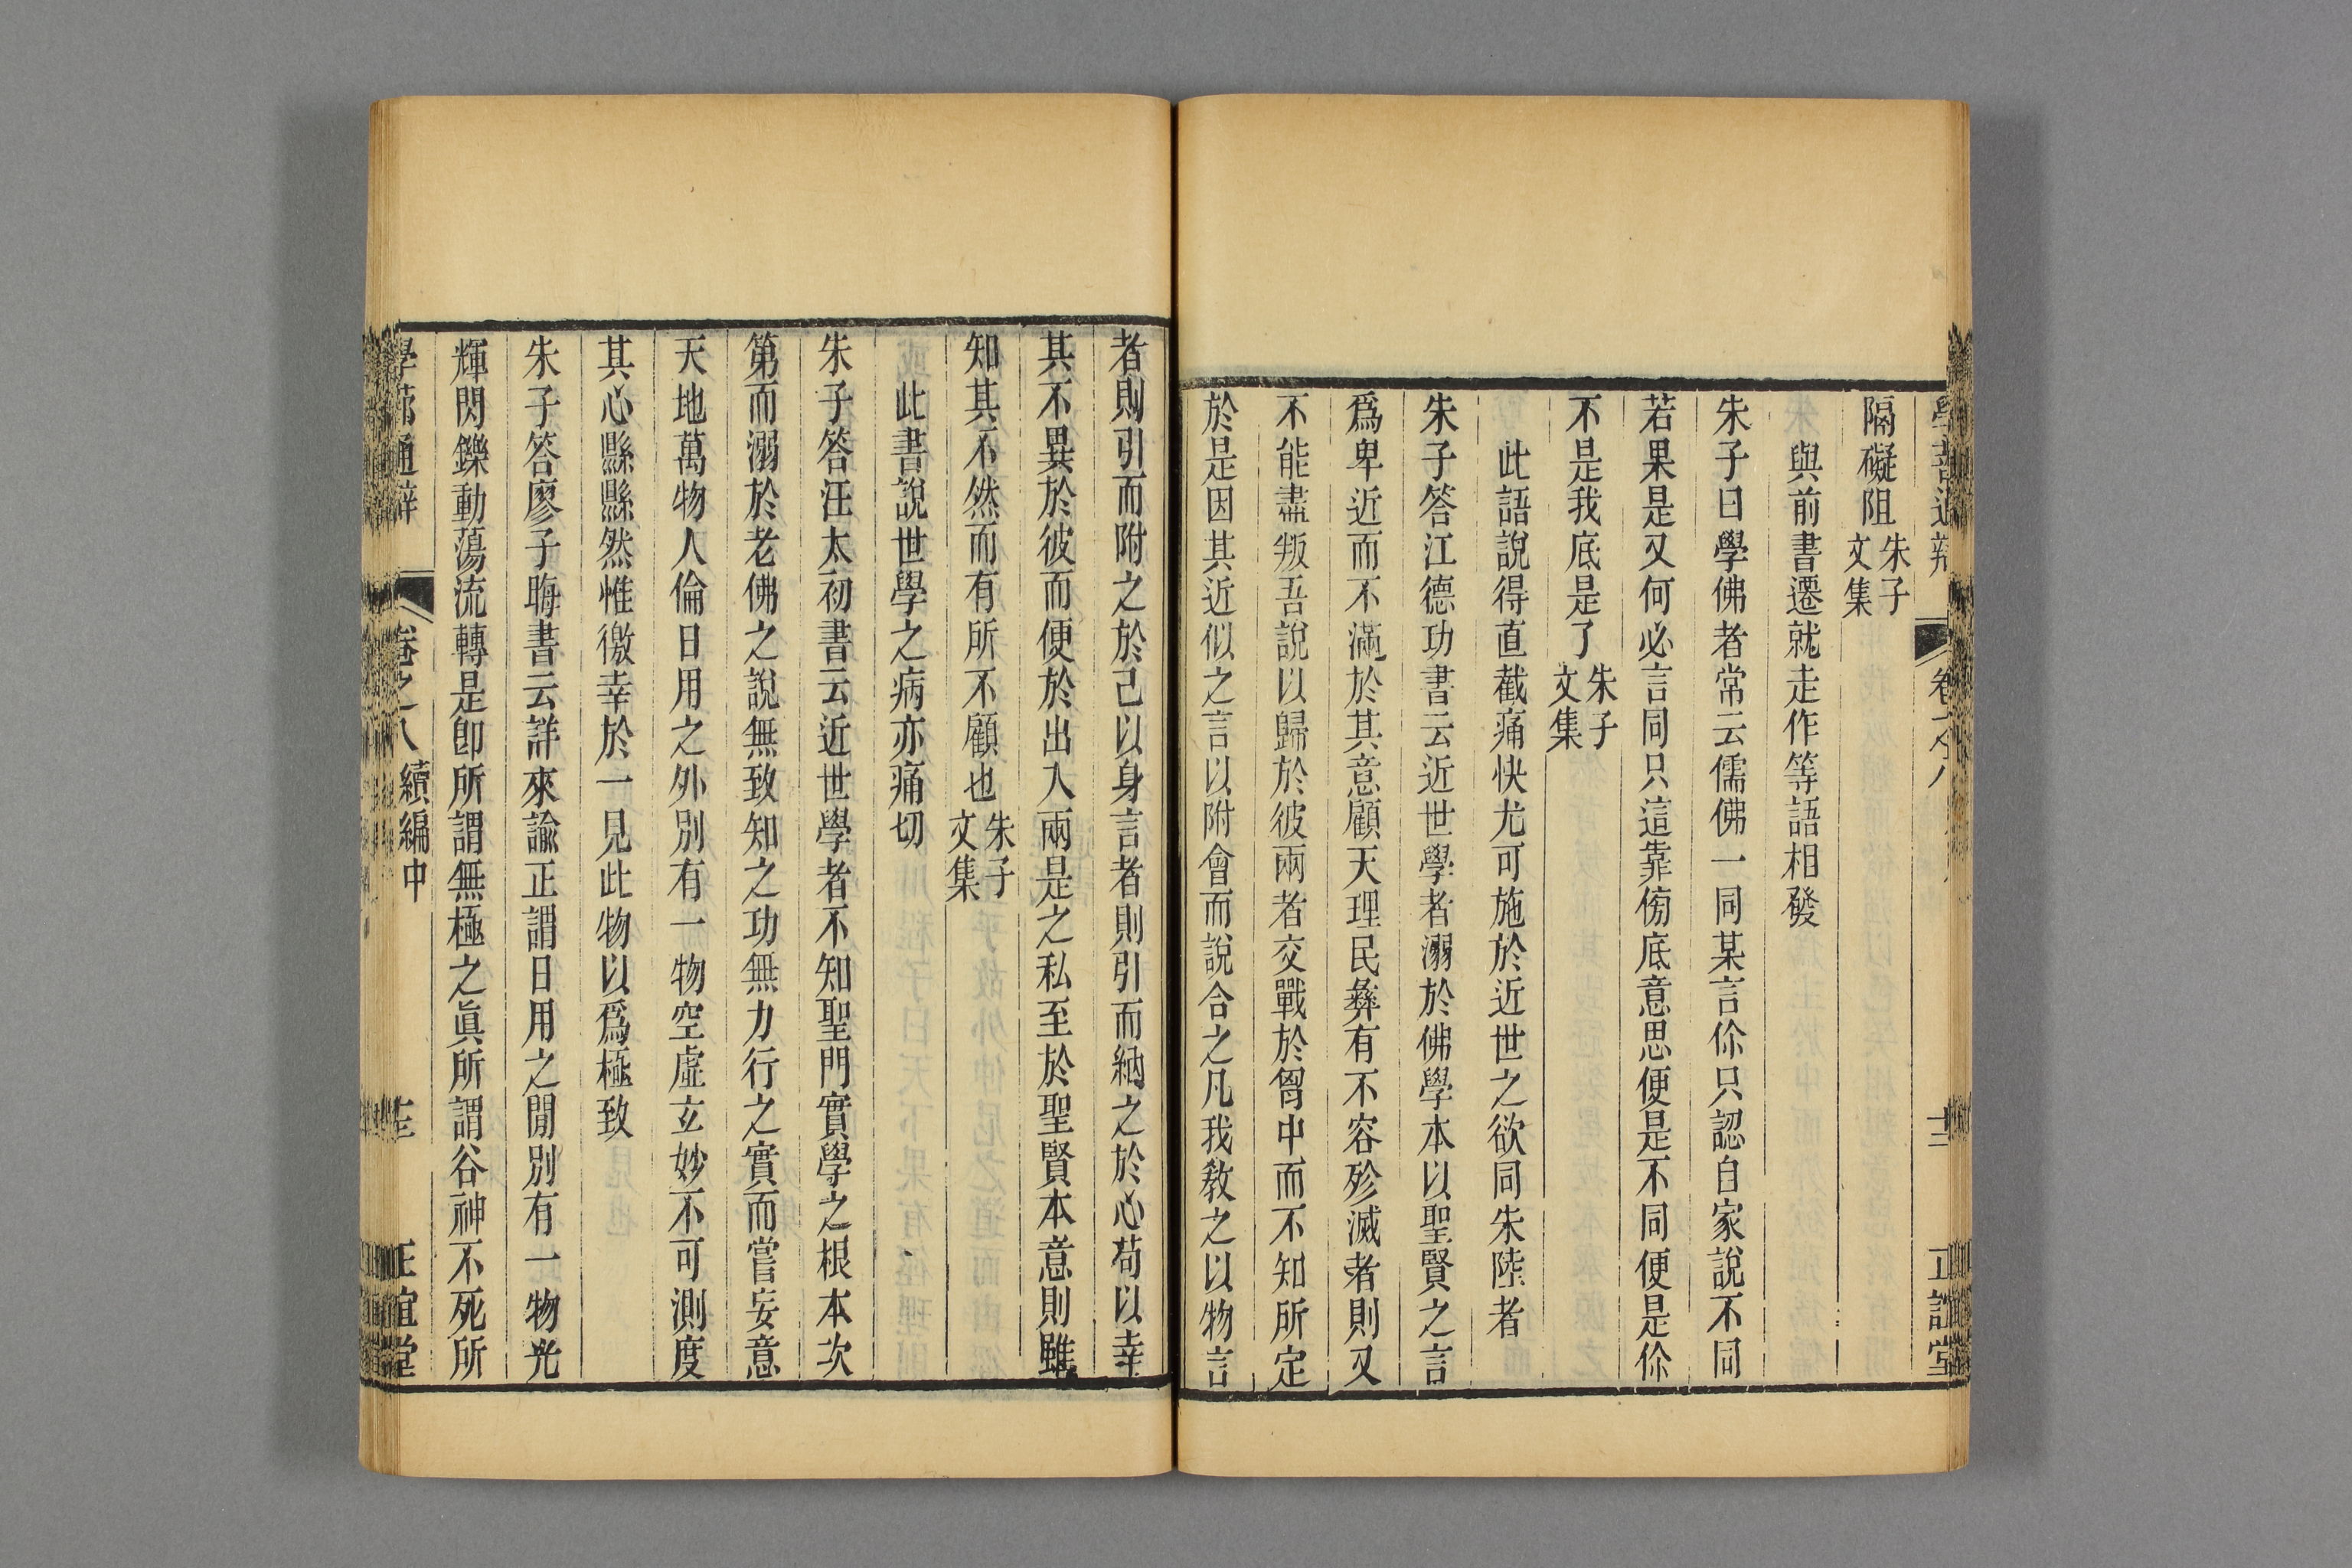 隔礙阻朱子文集
與前書遷就走作等語相發
朱子曰學佛者常云儒佛一同某言伱只認自家說不同
若果是又何必言同只這靠傍底意思便是不同便是伱
不是我底是了朱子文集
此語說得直截痛快尤可施於近世之欲同朱陸者
朱子答江德功書云近世學者溺於佛學本以聖賢之言
爲卑近而不滿於其意顧天理民彝有不容殄滅者則又
不能盡叛吾說以歸於彼兩者交戰於胷中而不知所定
於是因其近似之言以附會而說合之凡我敎之以物言
者則引而附之於己以身言者則引而納之於心苟以幸
其不異於彼而便於出入兩是之私至於聖賢本意則雖
知其不然而有所不顧也朱子文集
此書說世學之病亦痛切
朱子答汪太初書云近世學者不知聖門實學之根本次
第而溺於老佛之說無致知之功無力行之實而嘗妄意
天地萬物人倫日用之外別有一物空虛玄妙不可測度
其心懸懸然惟徼幸於一見此物以爲極致
朱子答廖子晦書云詳來諭正謂日用之閒別有一物光
輝閃鑠動蕩流轉是卽所謂無極之眞所謂谷神不死所
學蔀通辯 卷之八 續編中 正誼堂